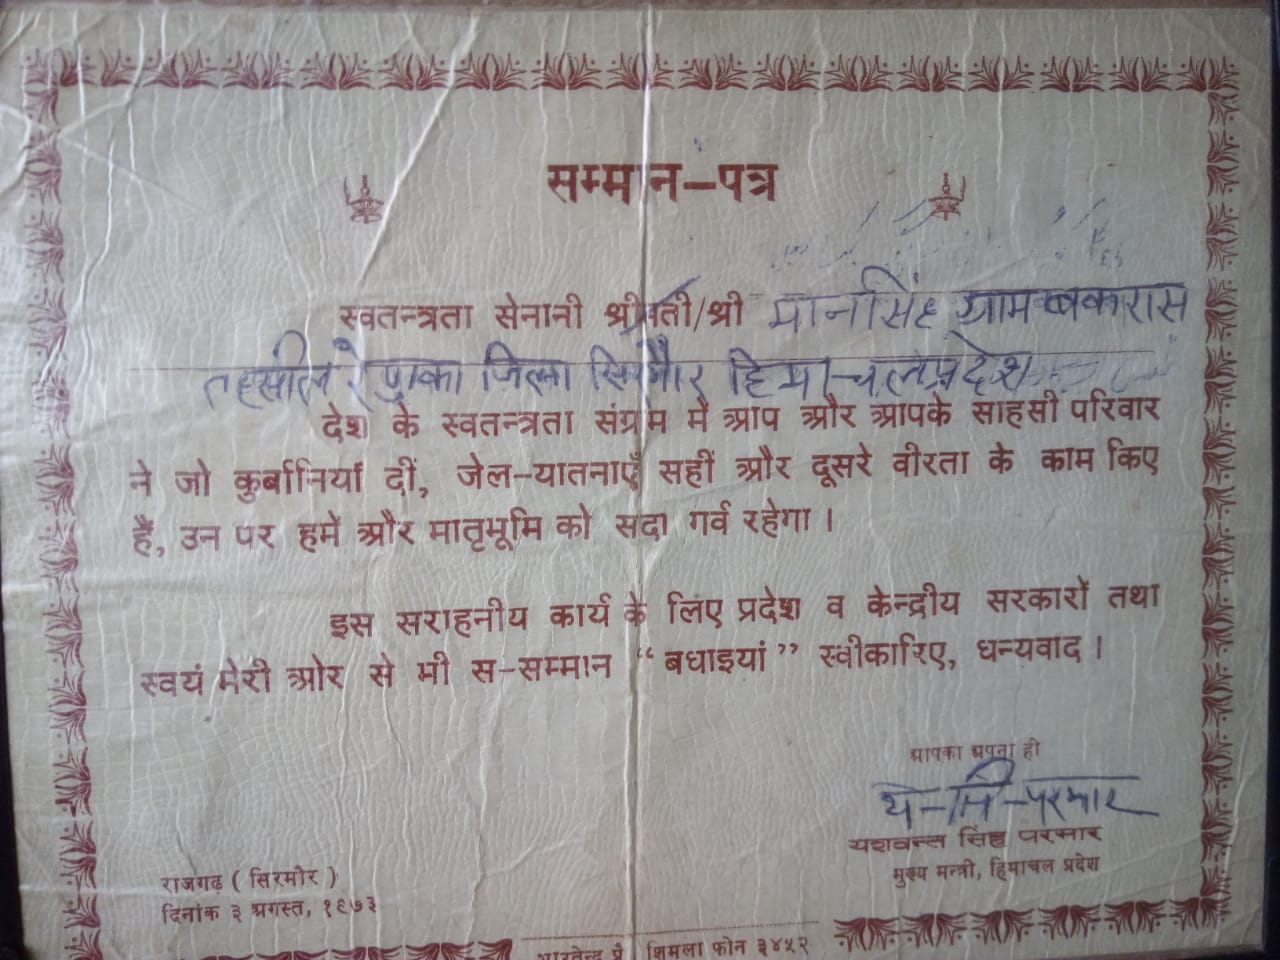 सम्मान-पत्र
स्वतन्त्रता सेनानी श्रीमती/श्री मानसिंह ग्राम बकारास
तहसील रेणुका जिला सिरमौर हिमाचल प्रदेश
देश के स्वतन्त्रता संग्रम में आप और आपके साहसी परिवार
ने जो कुर्बानियां दीं, जेल-यातनाएँ सहीं और दूसरे वीरता के काम किए
हैं, उन पर हमें और मातृभूमि को सदा गर्व रहेगा।
इस सराहनीय कार्य के लिए प्रदेश व केन्द्रीय सरकारों तथा
स्वयं मेरी ओर से भी स-सम्मान “बधाइयां” स्वीकारिए, धन्यवाद।
आपका अपना ही
य-सिं-परमार
यशवन्त सिंह परमार
मुख्य मन्त्री, हिमाचल प्रदेश
राजगढ़ (सिरमौर)
दिनांक ३ अगस्त, १९७३
भारतेन्दु प्रै शिमला फोन ३४५२